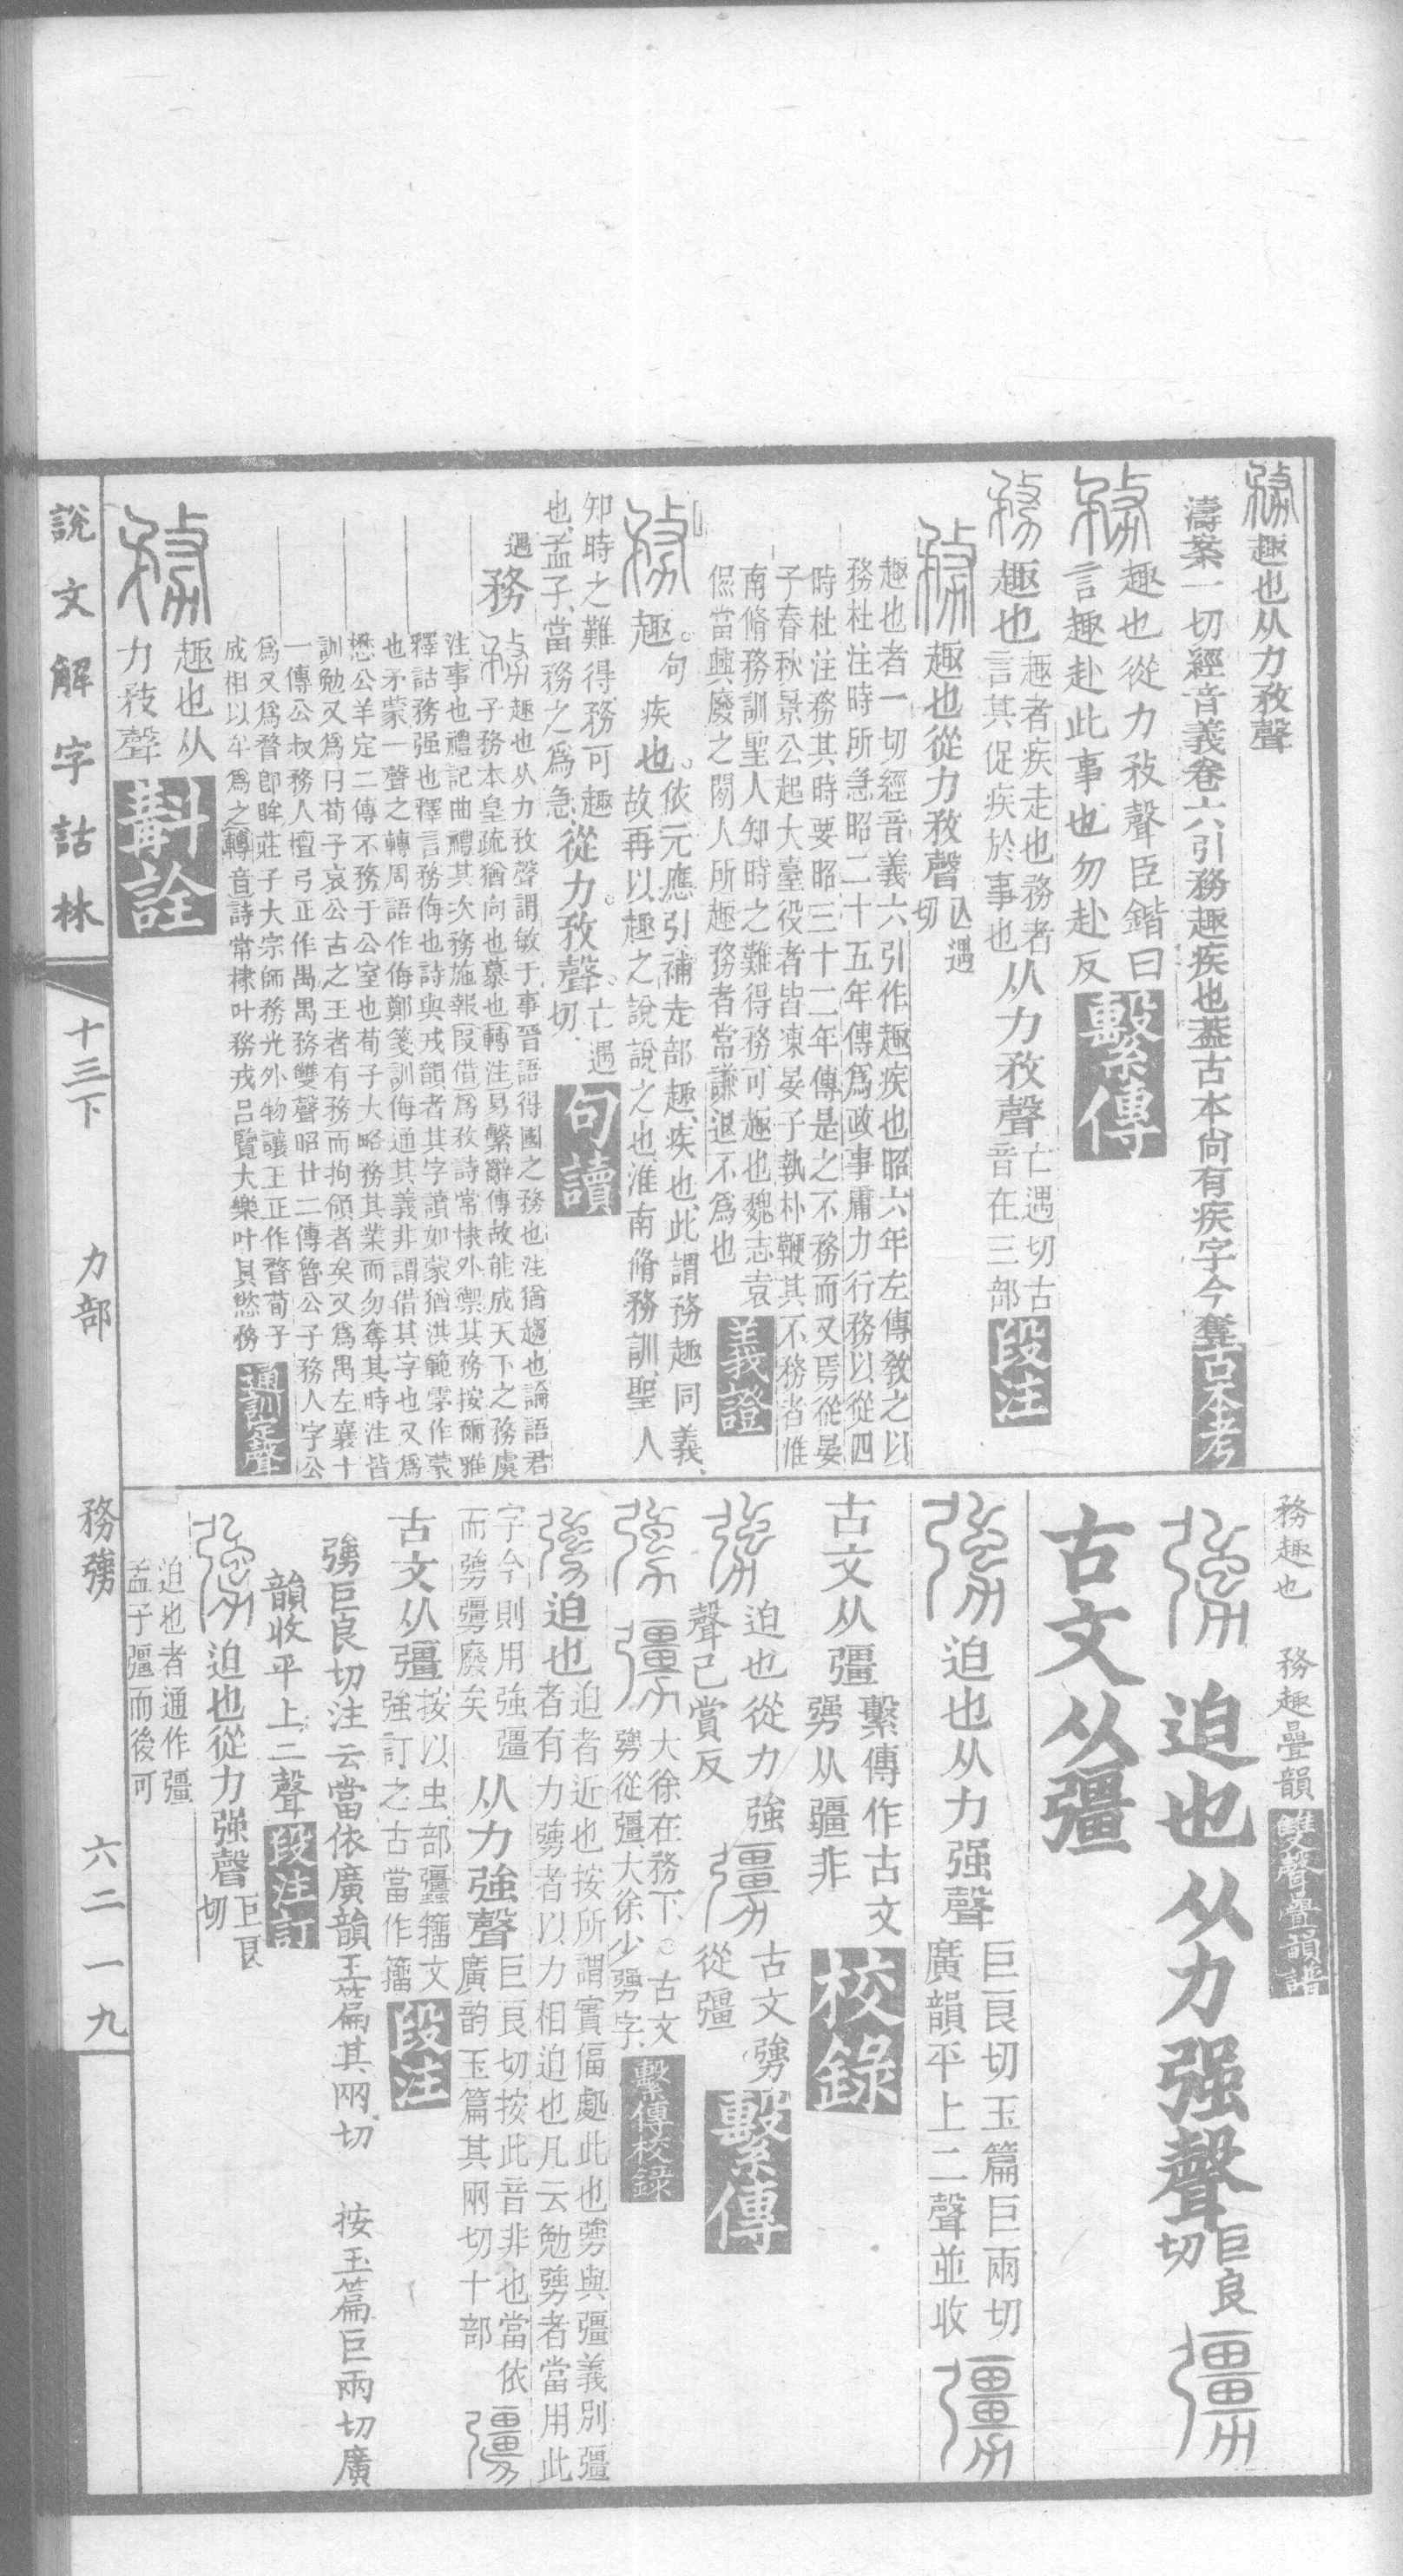 務趣也从力敄聲
濤案一切經音義卷六引務趣疾也蓋古本尚有疾字今奪古本考
務趣也從力敄聲臣鍇曰
言趣赴此事也勿赴反繫傳
務趣也趣者疾走也務者
言其促疾於事也从力敄聲亡遇切古
音在三部段注
務趣也從力敄聲亾遇
切
趣也者一切經音義六引作趣疾也昭六年左傳敎之以
務杜注時所急昭二十五年傳爲政事庸力行務以從四
時杜注務其時要昭三十二年傳是之不務而又焉從晏
子春秋景公起大臺役者皆凍晏子執朴鞭其不務者淮
南脩務訓聖人知時之難得務可趣也魏志袁
侃當興廢之閒人所趣務者常謙退不爲也義證
務趣句疾也依元應引補走部趣疾也此謂務趣同義
故再以趣之說說之也淮南脩務訓聖人
知時之難得務可趣
也孟子當務之爲急從力敄聲亡遇
切句讀
務趣也从力敄聲謂敏于事晉語得國之務也注猶趨也論語君
子務本皇疏猶向也慕也轉注易繫辭傳故能成天下之務虞
注事也禮記曲禮其次務施報叚借爲敄詩常棣外禦其務按爾雅
釋詁務强也釋言務侮也詩與戎韻者其字讀如蒙猶洪範雺作蒙
也矛蒙一聲之轉周語作侮鄭箋訓侮通其義非謂借其字也又爲
懋公羊定二傳不務于公室也荀子大略務其業而勿奪其時注皆
訓勉又爲冃荀子哀公古之王者有務而拘領者矣又爲禺左襄十
一傳公叔務人檀弓正作禺禺務雙聲昭廿二傳魯公子務人字公
爲又爲瞀卽眸莊子大宗師務光外物讓王正作瞀荀子
成相以牟爲之轉音詩常棣叶務戎呂覽大樂叶具愁務通訓定聲
務趣也从
力敄聲斠詮
務趣也 務趣疊韻雙聲疊韻譜
勥迫也从力强聲巨良
切
古文从彊
勥迫也从力强聲巨良切玉篇巨兩切
廣韻平上二聲並收
古文从彊繫傳作古文
勥从疆非校錄
勥迫也從力強
聲己賞反古文勥
從彊繫傳
大徐在務下○古文
勥從彊大徐少勥字繫傳校錄
勥迫也迫者近也按所謂實偪處此也勥與彊義別彊
者有力勥者以力相迫也凡云勉勥者當用此
字今則用強彊
而勥勥廢矣从力強聲巨良切按此音非也當依
廣韵玉篇其兩切十部
古文从彊按以虫部䖔籒文
強訂之古當作籒段注
勥巨良切注云當依廣韻玉篇其兩切 按玉篇巨兩切廣
韻收平上二聲段注訂
勥迫也從力强聲巨良
切
迫也者通作彊
孟子彊而後可
說文解字詁林 十三下 力部 務勥 六二一九